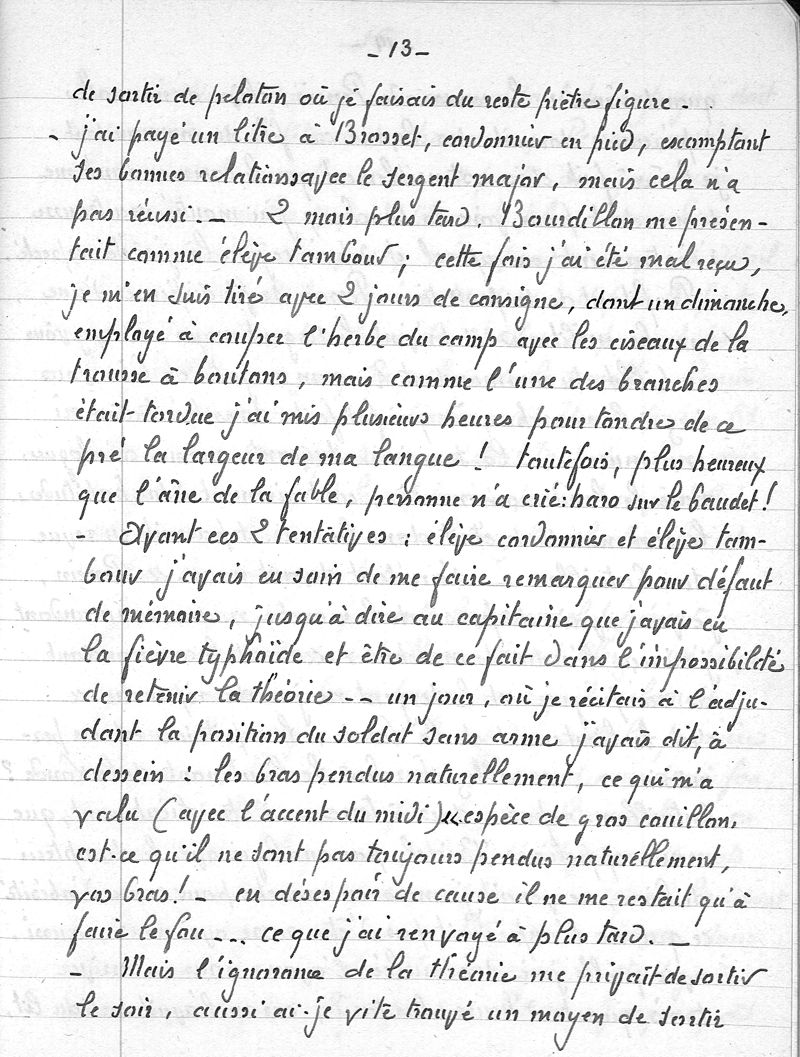 - 13 -
de sortir de peloton où je faisais du reste piètre figure -
- j'ai payé un litre à Brosset, cordonnier en pied, escomptant
ses bonnes relations avec le sergent major, mais cela n'a
pas réussi. - 2 mois plus tard. Bourdillon me présen-
tait comme élève tambour ; cette fois j'ai été mal reçu,
je m'en suis tiré avec 2 jours de consigne, dont un dimanche,
employé à couper l'herbe du camp avec les ciseaux de la
trousse à boutons, mais comme l'une des branches
était tordue j'ai mis plusieurs heures pour tondre de ce
pré la largeur de ma langue ! toutefois, plus heureux
que l'âne de la fable, personne n'a crié : haro sur le baudet !
- Avant ces 2 tentatives : élève cordonnier et élève tam-
bour j'avais eu soin de me faire remarquer pour défaut
de mémoire, jusqu'à dire au capitaine que j'avais eu
la fièvre typhoïde et être de ce fait dans l'impossibilité
de retenir la théorie -- un jour, où je récitais à l'adju-
dant la position du soldat sans arme j'avais dit, à
dessein : les bras pendus naturellement, ce qui m'a
valu (avec l'accent du midi) « espèce de gros couillon,
est-ce qu'il ne sont pas toujours pendus naturellement,
vos bras ! - en désespoir de cause il ne me restait qu'à
faire le fou ... ce que j'ai renvoyé à plus tard. -
- Mais l'ignorance de la théorie me privait de sortir
le soir, aussi ai-je vite trouvé un moyen de sortir